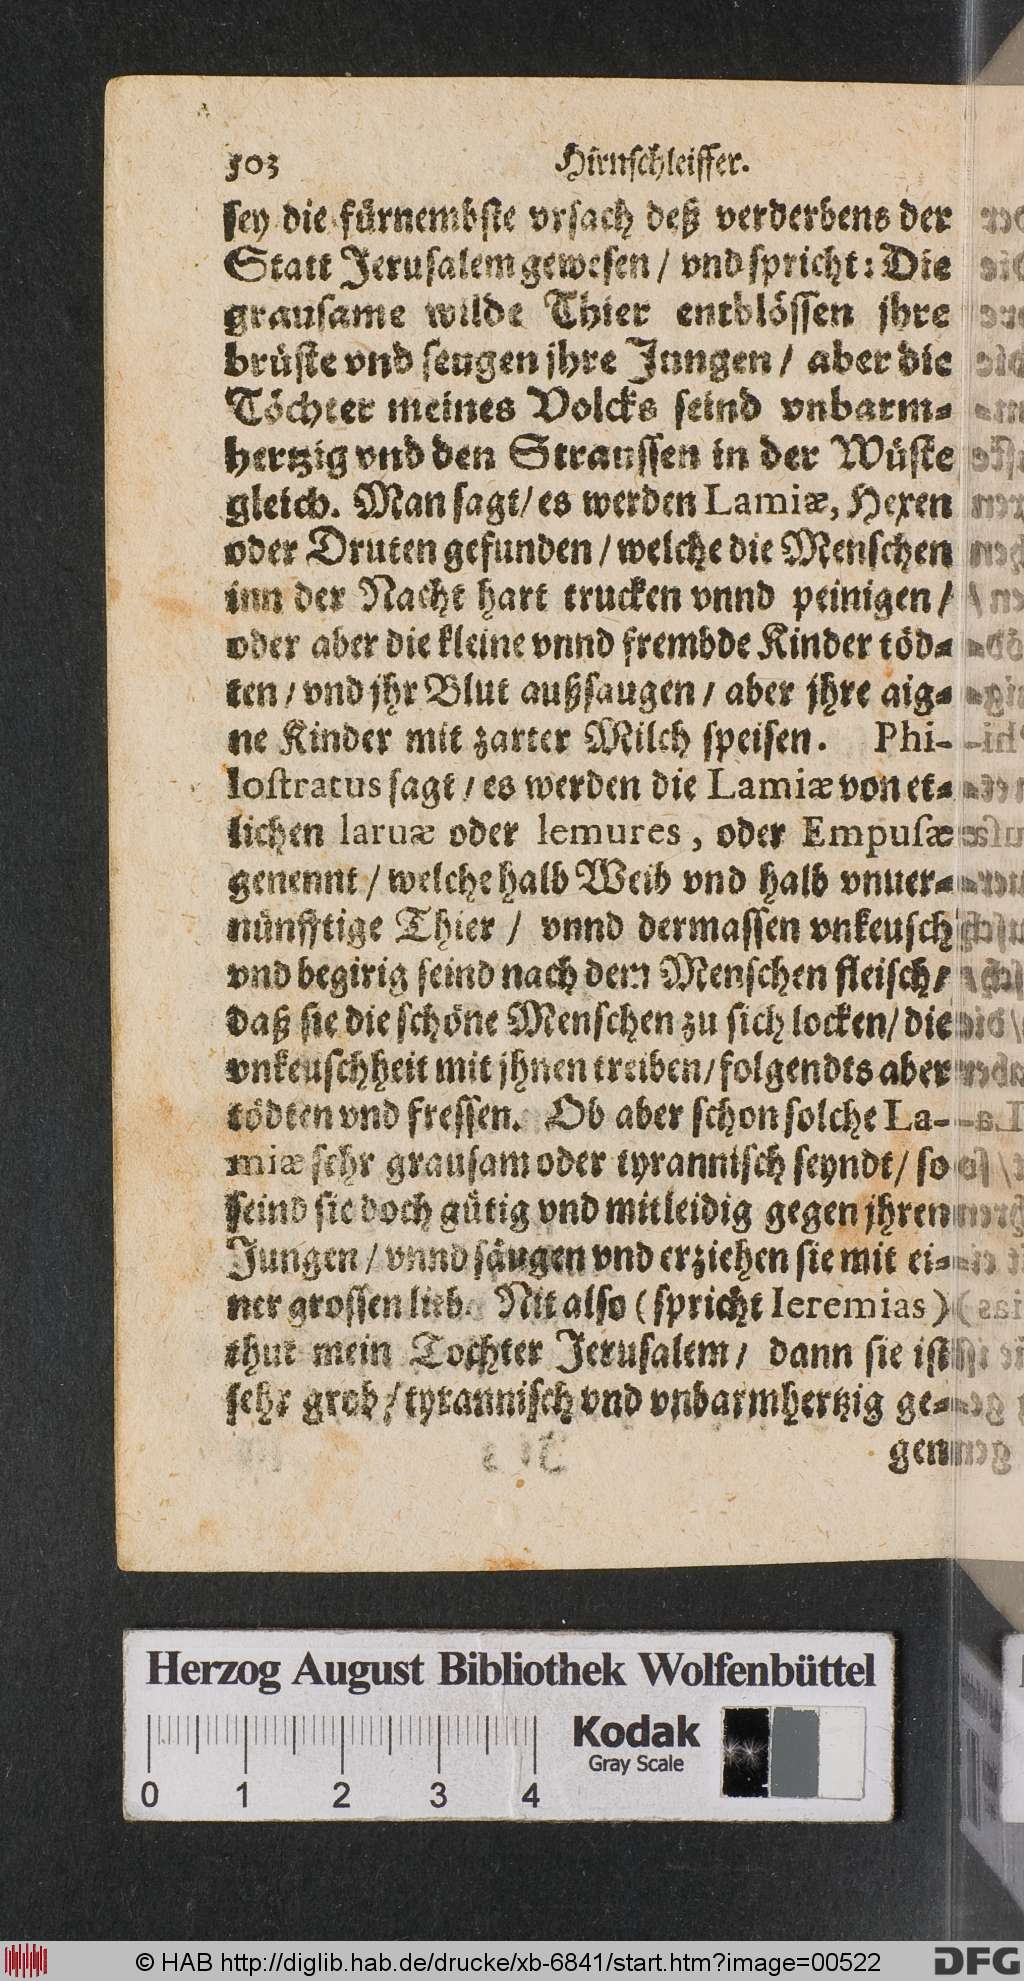 503 Hirnschleiffer.
sey die fürnembste vrsach deß verderbens der
Statt Jerusalem gewesen / vnd spricht: Die
grausame wilde Thier entblössen jhre
brüste vnd seugen jhre Jungen / aber die
Töchter meines Volcks seind vnbarm-
hertzig vnd den Straussen in der Wüste
gleich. Man sagt / es werden Lamiæ, Hexen
oder Druten gefunden / welche die Menschen
inn der Nacht hart trucken vnnd peinigen /
oder aber die kleine vnnd frembde Kinder töd-
ten / vnd jhr Blut außsaugen / aber jhre aig-
ne Kinder mit zarter Milch speisen. Phi-
lostratus sagt / es werden die Lamiæ von et-
lichen laruæ oder lemures, oder Empusæ
genennt / welche halb Weib vnd halb vnuer-
nünfftige Thier / vnnd dermassen vnkeusch
vnd begirig seind nach dem Menschen fleisch /
daß sie die schöne Menschen zu sich locken / die
vnkeuschheit mit jhnen treiben / folgendts aber
tödten vnd fressen. Ob aber schon solche La-
miæ sehr grausam oder tyrannisch seyndt / so
seind sie doch gütig vnd mitleidig gegen jhren
Jungen / vnnd säugen vnd erziehen sie mit ei-
ner grossen lieb. Nit also (spricht Ieremias)
thut mein Tochter Jerusalem / dann sie ist
sehr grob / tyrannisch vnd vnbarmhertzig ge-
gen
Herzog August Bibliothek Wolfenbüttel
Kodak
Gray Scale
0 1 2 3 4
© HAB http://diglib.hab.de/drucke/xb-6841/start.htm?image=00522
DFG